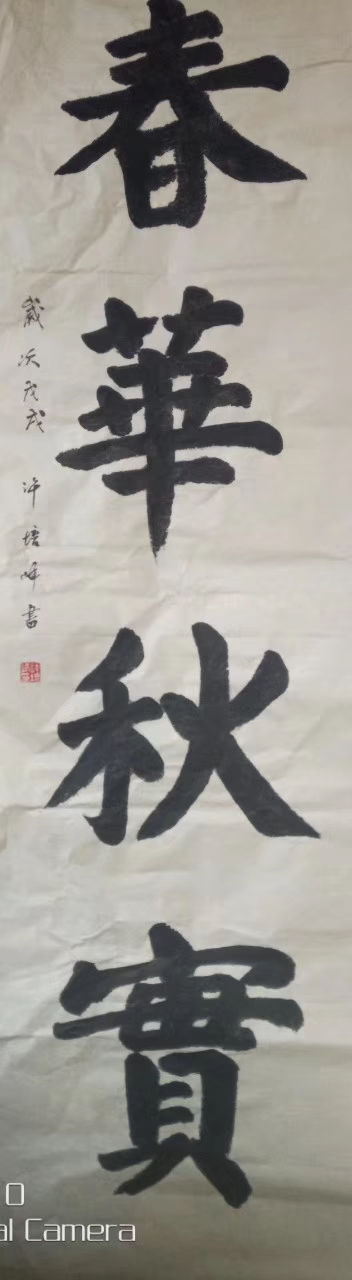 春華秋實
歲次戊戌 许培峰書
0
al Camera